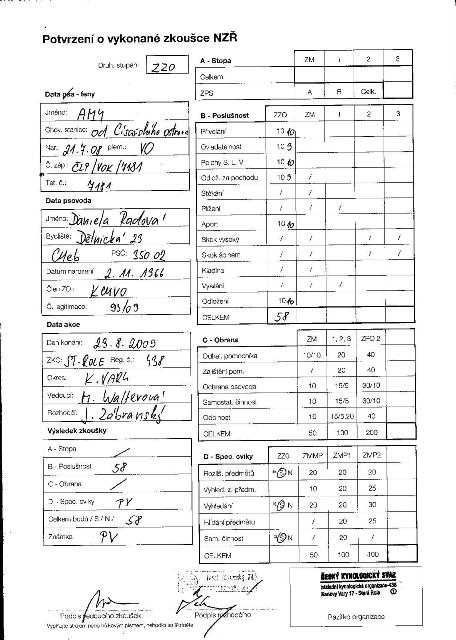 Potvrzení o vykonané zkoušce NZŘ
Druh, stupeň: ZZO
Data psa - feny
Jméno: AMY
Chov. stanice: od Císařského ostrova
Nar.: 21.7.08 plem.: VO
Č. záp.: ČLP/VOK/7181
Tet. č.: 7181
Data psovoda
Jméno: Daniela Radová
Bydliště: Dělnická 23
Cheb PSČ: 350 02
Datum narození 2. 11. 1966
Člen ZO:
Č. legitimace: 93/09
Data akce
Den konání: 29.8.2009
ZKO: ST. ROLE Reg. č.: 438
Okres: K. VARY
Vedoucí: M. Walterová
Rozhodčí: J. Zábranský
Výsledek zkoušky
A - Stopa /
B - Poslušnost 58
C - Obrana /
D - Spec. cviky PV
Celkem bodů / S / N / 58
Známka PV
A - Stopa ZM 1 2 3
Celkem
ZPS A B Celk.
B - Poslušnost ZZO ZM 1 2 3
Přivolání 10 10
Ovladatelnost 10 9
Polohy S, L, V 10 10
Odlož. za pochodu 10 9 /
Štěkání / /
Plížení / / /
Aport 10 10
Skok vysoký / / / /
Skok šplhem / / / /
Kladina / /
Vysílání / / /
Odložení 10 10
CELKEM 58
C - Obrana ZM 1, 2, 3 ZPO 2
Odhal. pomocníka 10/10 20 40
Zajištění pom. / 20 40
Ochrana psovoda 10 15/5 30/10
Samostat. činnost 10 15/5 30/10
Odolnost 10 15/5,20 40
CELKEM 50 100 200
D - Spec. cviky ZZO ZMMP ZMP1 ZMP2
Rozliš. předmětů S N 20 20 20
Vyhled. z. předm. 10 20 25
Vyhledání S N 20 20 30
Hlídání předmětu / 20 25
Sam. činnost S N / 20 /
CELKEM 50 100 100
Podpis vedoucího zkoušek
Podpis rozhodčího
Razítko organizace
Vyplňujte strojem nebo hůlkovým písmem, nehodící se škrtněte
ČESKÝ KYNOLOGICKÝ SVAZ
základní kynologická organizace-438
Karlovy Vary 17 - Stará Role